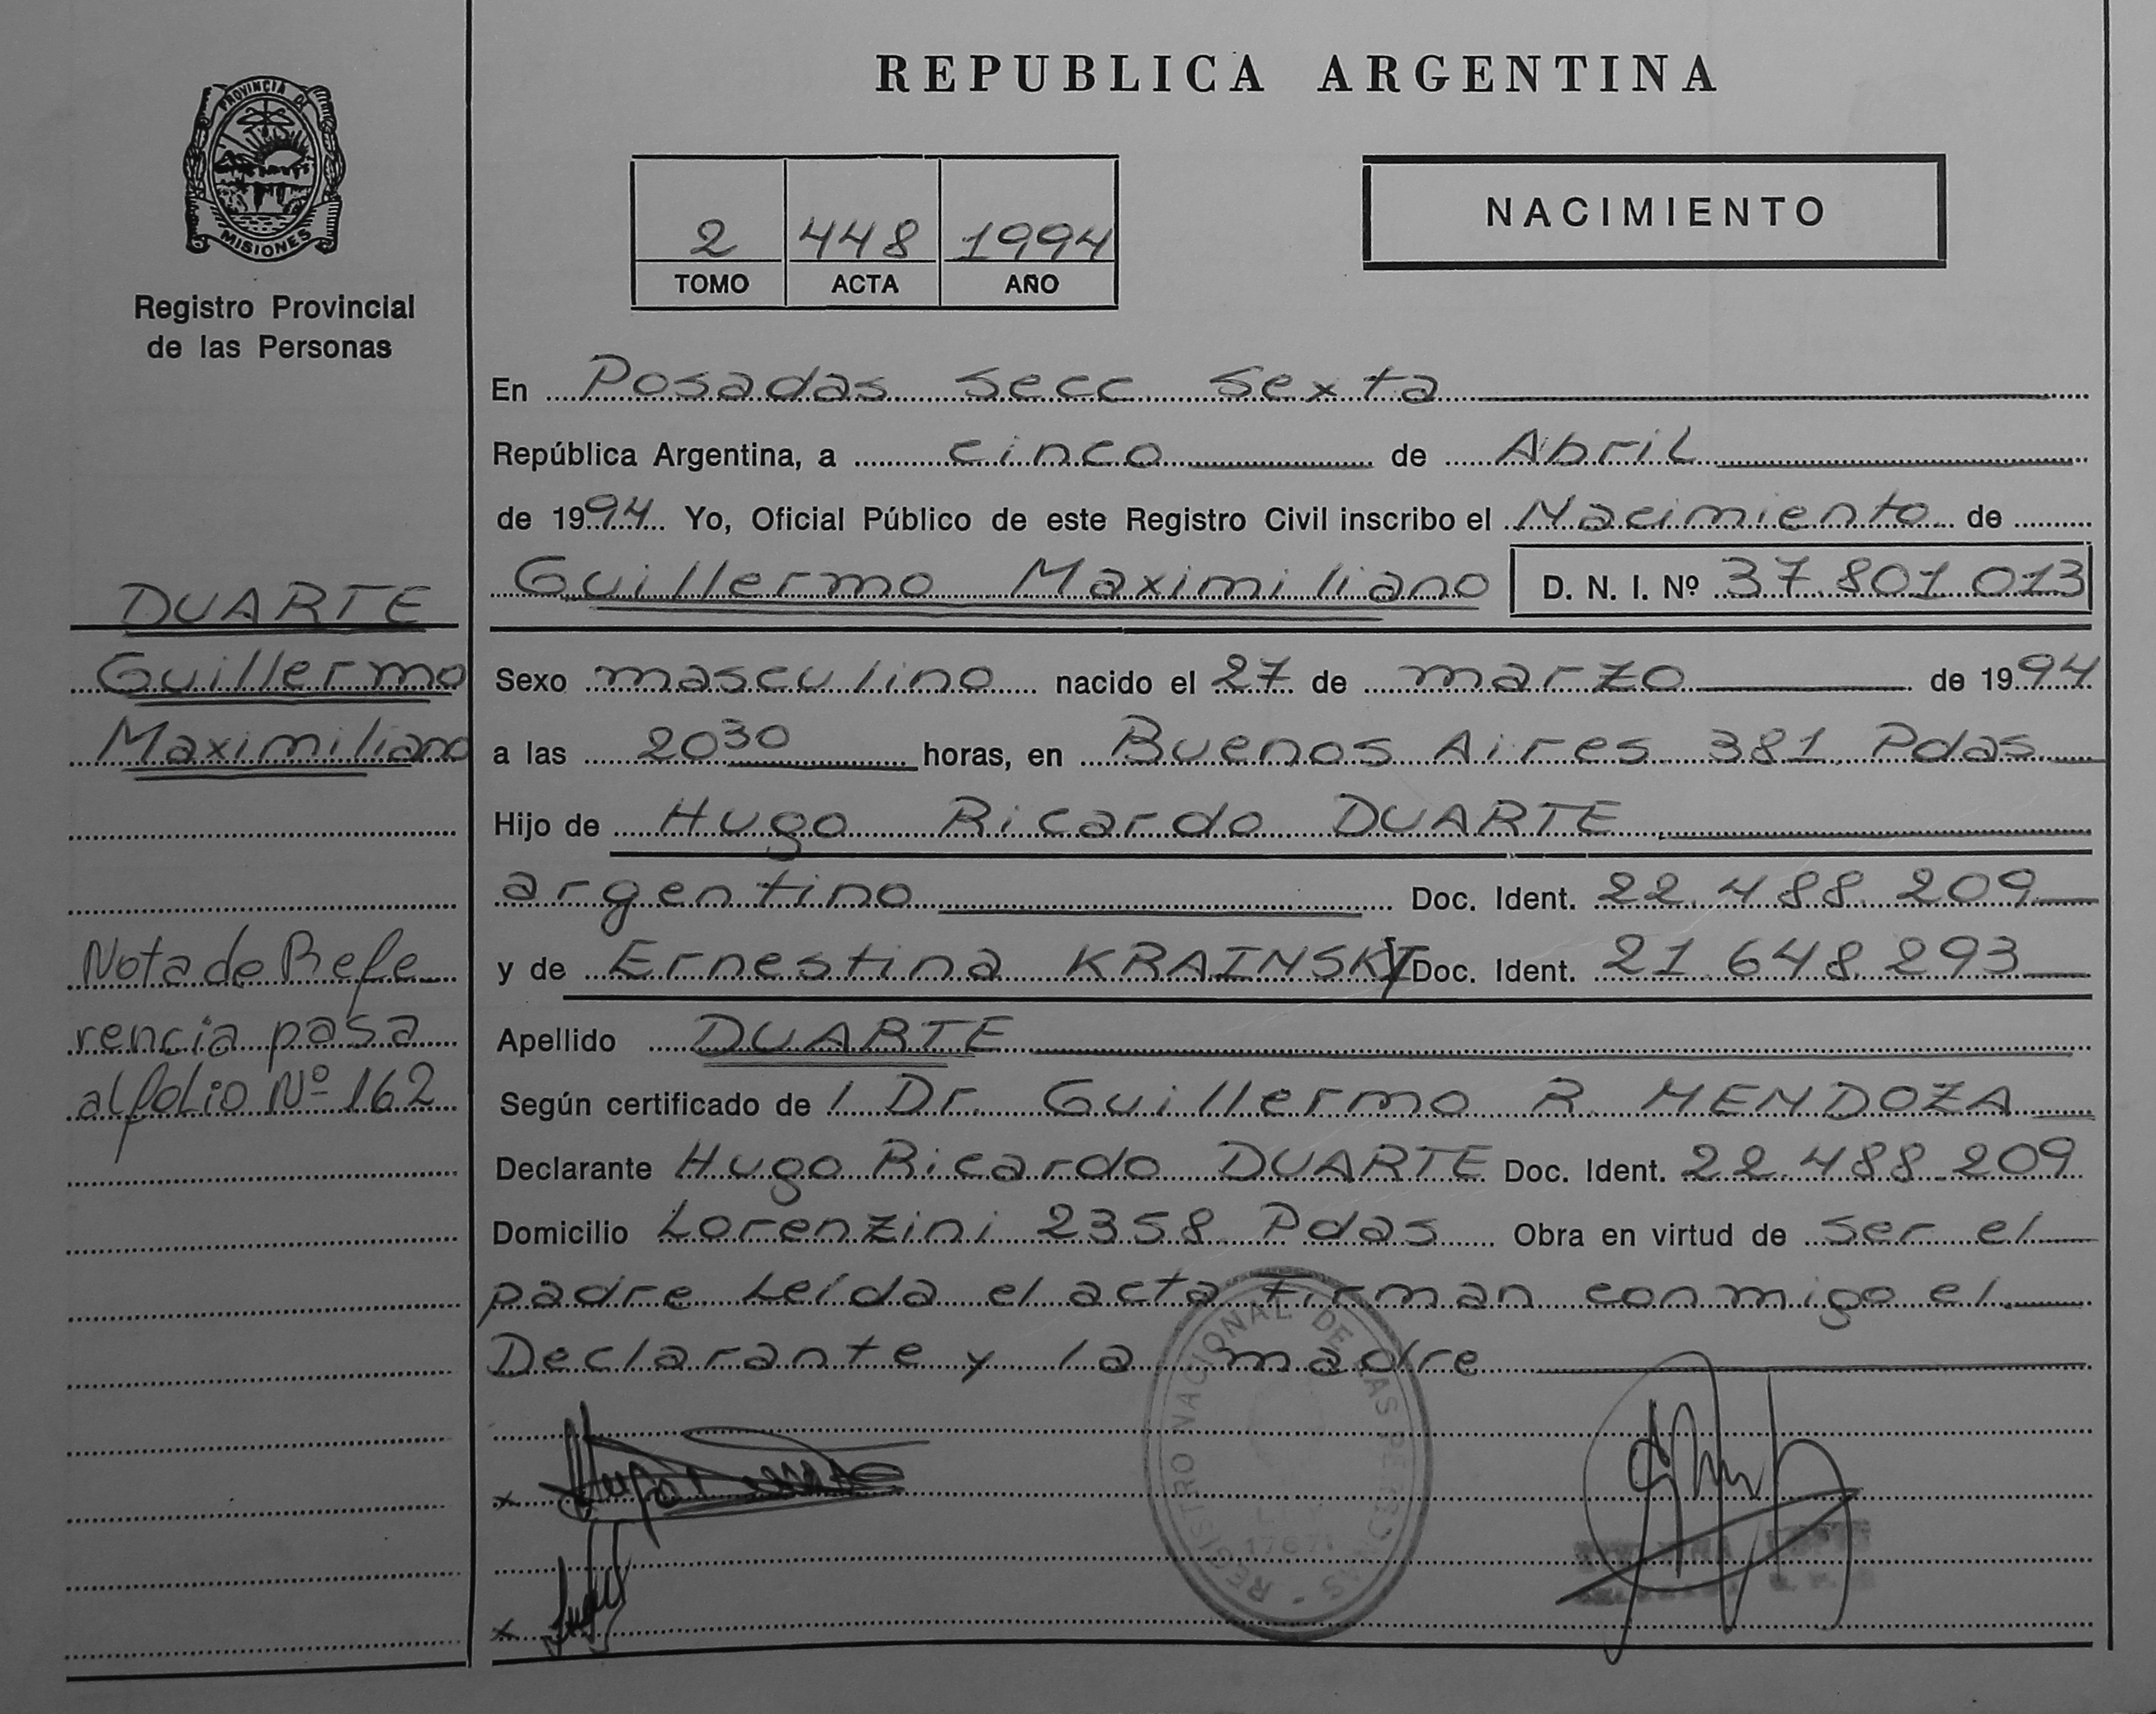 PROVINCIA DE
MISIONES
Registro Provincial
de las Personas
DUARTE
Guillermo
Maximiliano
Nota de Refe
rencia pasa
al folio Nº 162
REPUBLICA ARGENTINA
2 448 1994
TOMO ACTA AÑO
NACIMIENTO
En Posadas Secc Sexta
República Argentina, a cinco de Abril
de 1994 Yo, Oficial Público de este Registro Civil inscribo el Nacimiento de
Guillermo Maximiliano D. N. I. Nº 37.801.013
Sexo masculino nacido el 27 de marzo de 1994
a las 20 30 horas, en Buenos Aires 381 Pdas
Hijo de Hugo Ricardo DUARTE
argentino Doc. Ident. 22.488.209
y de Ernestina KRAINSKI Doc. Ident. 21.648.293
Apellido DUARTE
Según certificado de l Dr. Guillermo R. MENDOZA
Declarante Hugo Ricardo DUARTE Doc. Ident. 22.488.209
Domicilio Lorenzini 2358 Pdas Obra en virtud de ser el
padre Leída el acta Firman conmigo el
Declarante y la madre
REGISTRO NACIONAL DE LAS PERSONAS
x Hugo Duarte
x